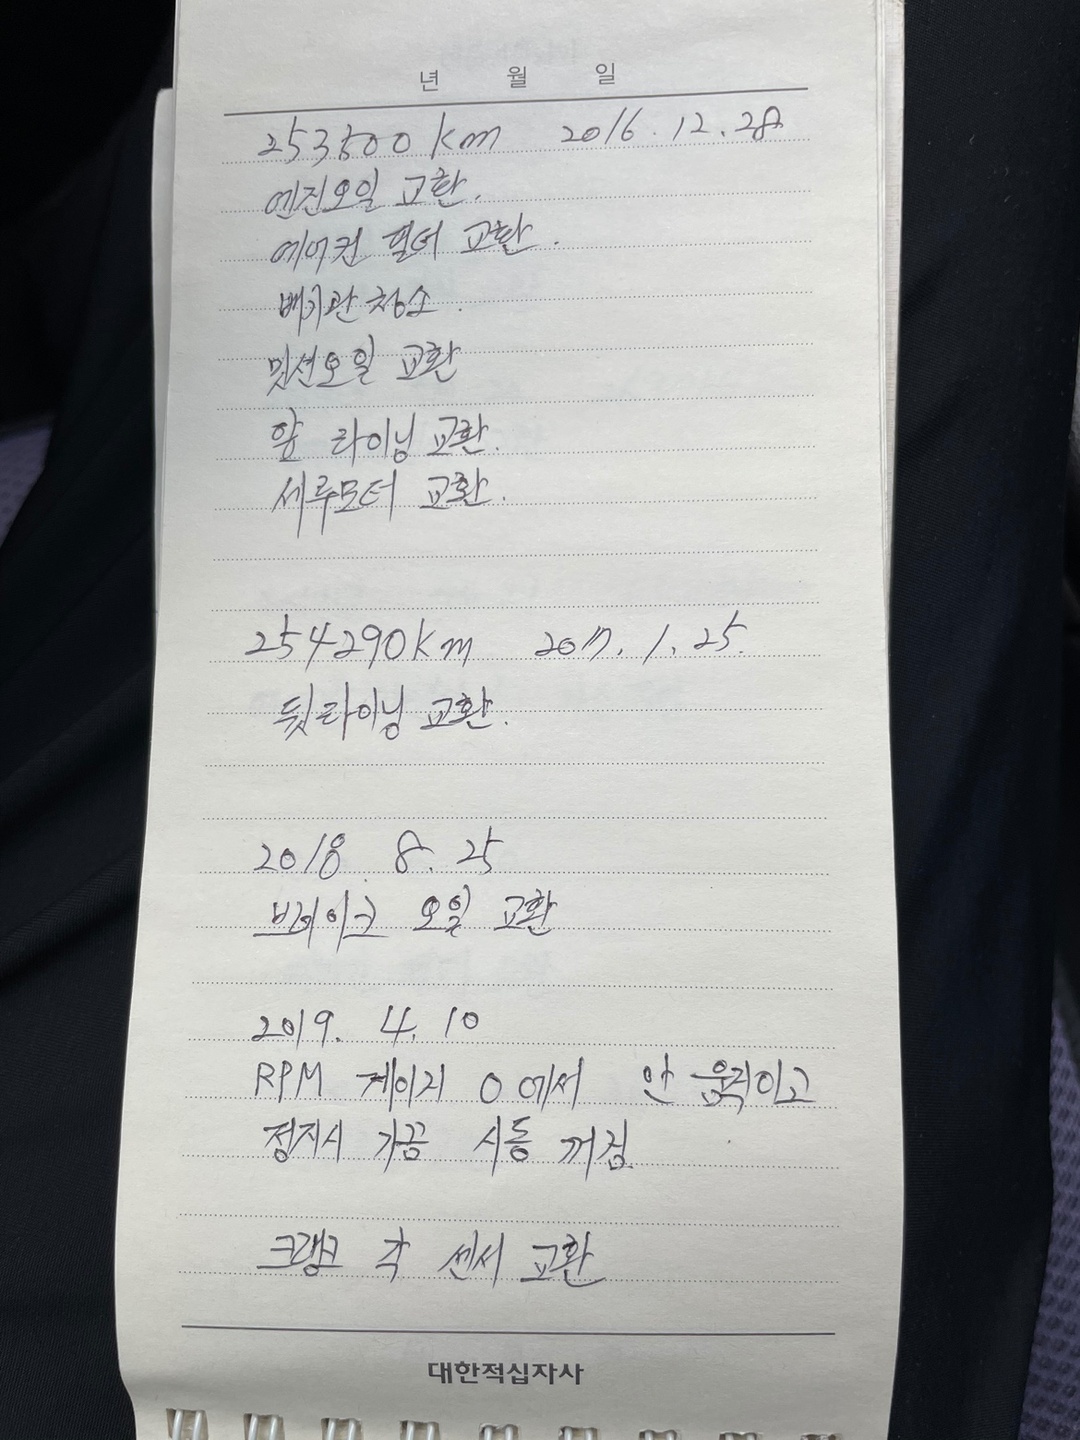 년 월 일
253500km 2016. 12. 28
엔진오일 교환.
에어컨 필터 교환.
배기관 청소.
밋션오일 교환
앞 라이닝 교환.
세루모터 교환.
254290km 2017. 1. 25.
뒷라이닝 교환.
2018. 8. 25
브레이크 오일 교환
2019. 4. 10
RPM 게이지 0에서 안 움직이고
정지시 가끔 시동 꺼짐.
크랭크 각 센서 교환
대한적십자사